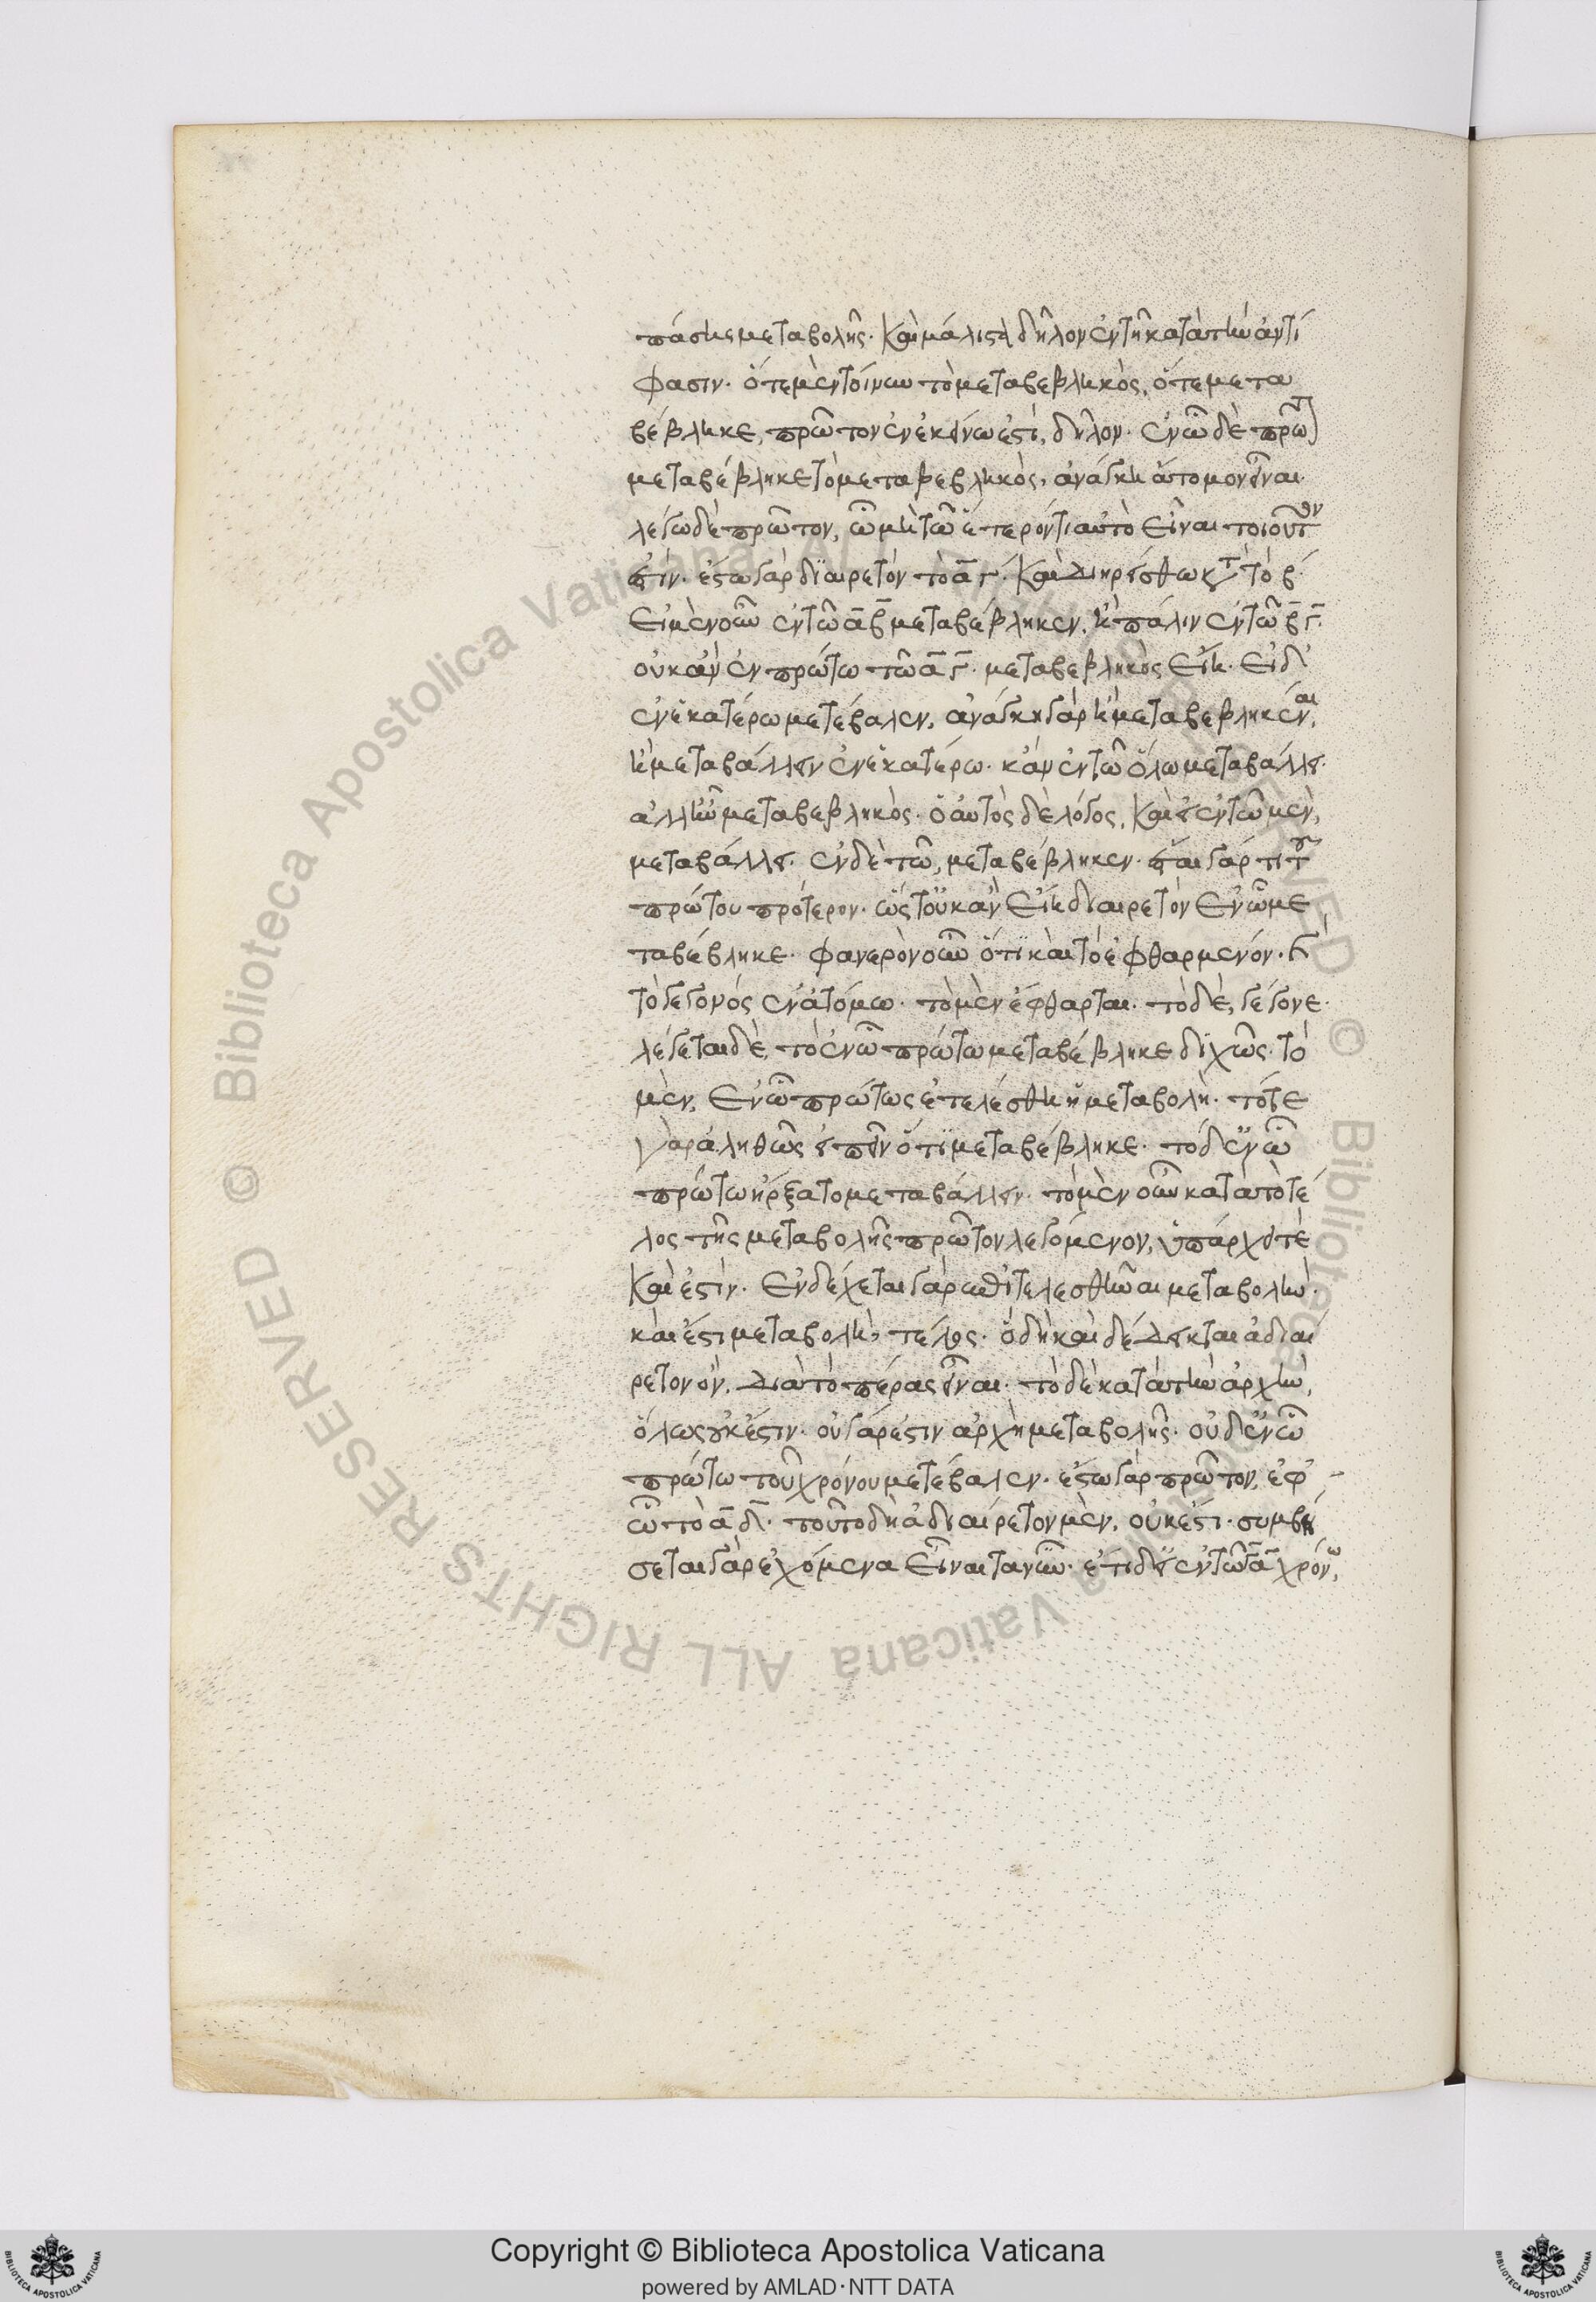 πάσης μεταβολῆς· καὶ μάλιστα δῆλον ἐν τῆ κατὰ τὴν ἀντί
φασιν· ὅτε μὲν τοίνυν τὸ μεταβεβληκὸς, ὅτε μετα
βέβληκε, πρῶτον ἐν ἐκείνω ἐστὶ, δῆλον· ἐν ῶ δὲ πρώτω
μεταβέβληκε τὸ μεταβεβληκὸς, ἀνάγκη ἄτομον εἶναι·
λέγω δὲ πρῶτον, ὃ μὴ τῶ ἕτερόν τι αὐτὸ εἶναι τοιοῦτόν
ἐστιν· ἔστω γὰρ διαιρετὸν τὸ α γ· καὶ διηρείσθω κατὰ τὸ β·
εἰ μὲν οὖν ἐν τῶ α β μεταβέβληκεν, καὶ πάλιν ἐν τῶ β γ·
οὐκ ἂν ἐν πρώτω τῶ α γ· μεταβεβληκὸς εἴη· εἰ δ'
ἐν ἑκατέρω μετέβαλεν, ἀνάγκη γὰρ ἢ μεταβεβληκέναι,
ἢ μεταβάλλειν ἐν ἑκατέρω· κἂν ἐν τῶ ὅλω μεταβάλλει·
ἀλλ' ἦν μεταβεβληκὸς· ὁ αὐτὸς δὲ λόγος, καὶ εἰ ἐν τῶ μὲν,
μεταβάλλει· ἐν δὲ τῶ, μεταβέβληκεν· ἔσται γάρ τι τοῦ
πρώτου πρότερον· ὥστ' οὐκ ἂν εἴη διαιρετὸν ἐν ῶ με
ταβέβληκε· φανερὸν οὖν ὅτι καὶ τὸ ἐφθαρμένον· καὶ
τὸ γεγονός ἐν ἀτόμω· τὸ μὲν ἔφθαρται· τὸ δὲ, γέγονε·
λέγεται δὲ, τὸ ἐν ῶ πρώτω μεταβέβληκε διχῶς· τὸ
μὲν, ἐν ῶ πρώτως ἐτελέσθη ἡ μεταβολὴ· τότε
γὰρ ἀληθῶς εἰπεῖν ὅτι μεταβέβληκε· τὸ δ' ἐν ῶ
πρώτω ἤρξατο μεταβάλλειν· τὸ μὲν οὖν κατὰ τὸ τέ
λος τῆς μεταβολῆς πρῶτον λεγόμενον, ὑπάρχει τὲ
καὶ ἔστιν· ἐνδέχεται γὰρ ἐπιτελεσθῆναι μεταβολὴν·
καὶ ἔστι μεταβολῆς τέλος· ὃ δὴ καὶ δέδεικται ἀδιαί
ρετον ὂν, διὰ τὸ πέρας εἶναι· τὸ δὲ κατὰ τὴν ἀρχὴν,
ὅλως οὐκ ἔστιν· οὐ γάρ ἐστιν ἀρχὴ μεταβολῆς· οὐδ' ἐν ῶ
πρώτω τοῦ χρόνου μετέβαλεν· ἔστω γὰρ πρῶτον, ἐφ'
ῶ τὸ α δ· τοῦτο δὴ ἀδιαίρετον μὲν, οὐκ ἔστι· συμβή
σεται γὰρ ἐχόμενα εἶναι τὰ νῦν· ἔτι δ' εἰ ἐν τῶ γα χρόνω,